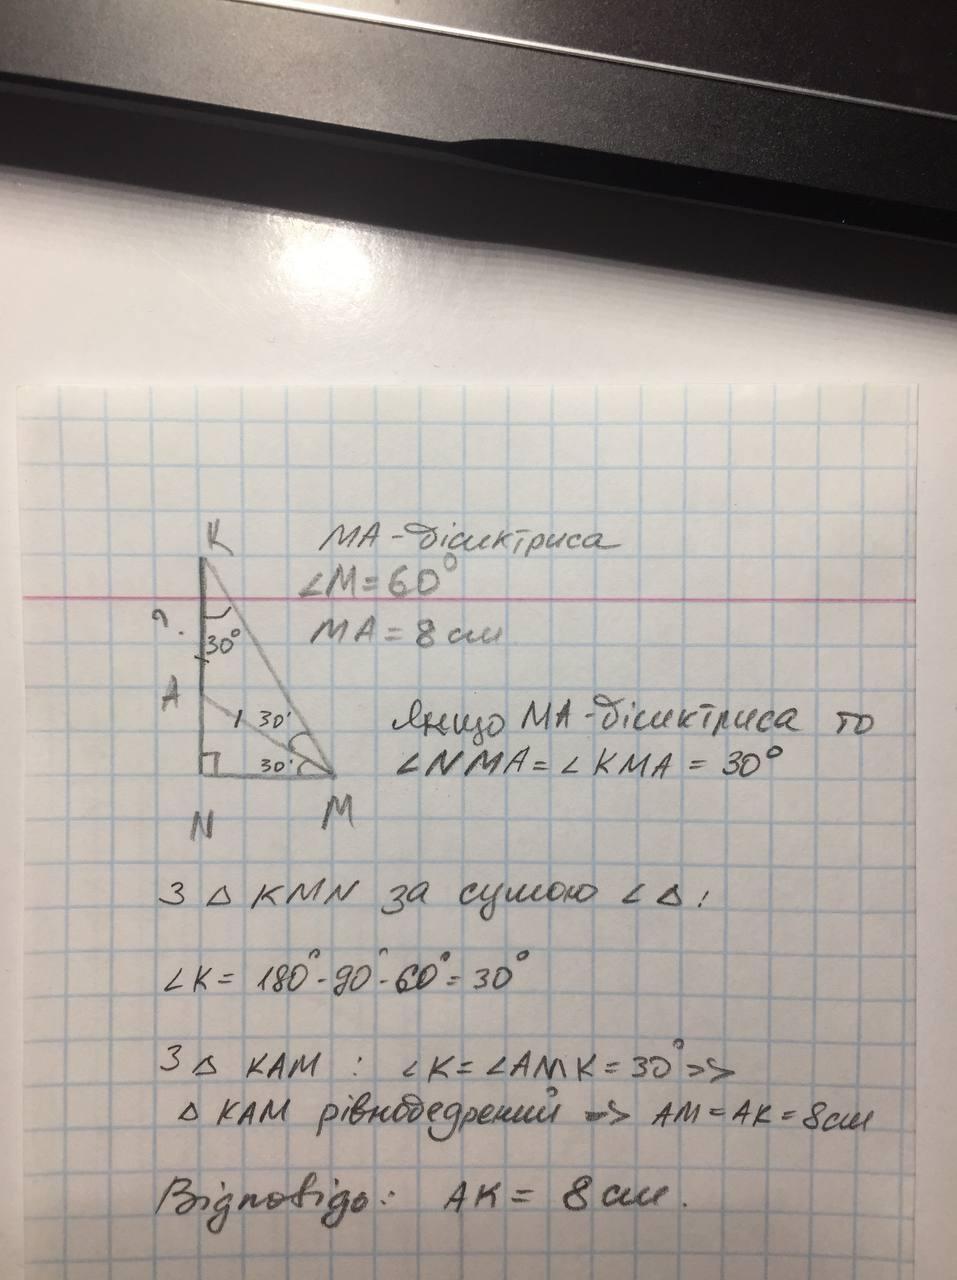 K
MA - бісиктриса
∠M = 60°
?.
30°
MA = 8 см
A
30°
Якщо MA - бісиктриса то
30°
∠NMA = ∠KMA = 30°
N
M
З △ KMN за сумою ∠△:
∠K = 180° - 90° - 60° = 30°
З △ KAM : ∠K = ∠AMK = 30° =>
△ KAM рівнобедрений => AM = AK = 8 см
Відповідь: AK = 8 см.